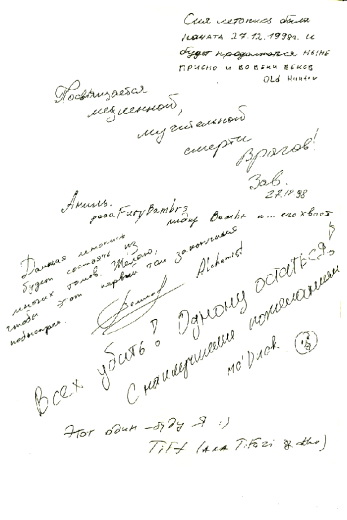 Сия летопись была
начата 27.12.1998г. и
будет продолжаться ныне
присно и во веки веков
Old Hunter
Посвящается
медленной,
мучительной
смерти
Врагов!
Зав.
27.12.98
Аминь.
рога FuryBombrs
лидер Bombr и... его хвост
Данная летопись
будет состоять из
многих томов. Желаю,
чтобы этот первый том закончился
побыстрее.
Alchemist
Всех убить! Одному остаться!
С наилучшими пожеланиями
mo'Drak
Этот один - буду я :)
TiTi (aka